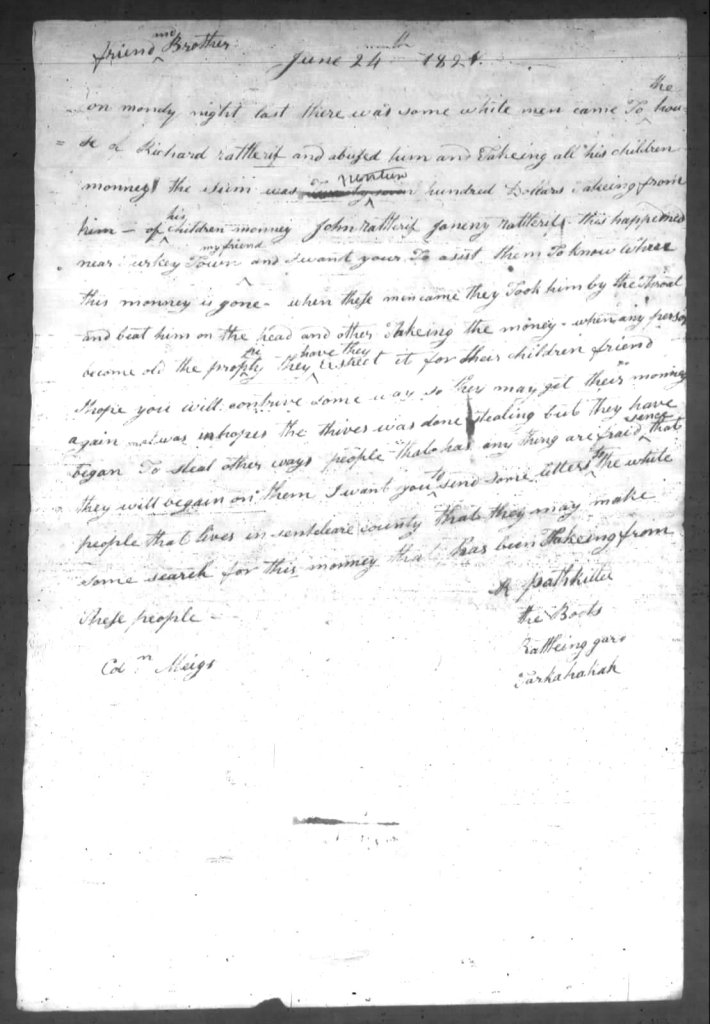 friend and Brother
June 24 1821.
on mondy night last there was some white men came To the hou-
= se a Richard ratterif and abused him and Takeing all his children
monney the sum was hundred Dollars Takeing from
him - of his children monney John ratterif ratterif this happened
near Turkey Town my friend and I want your To asist them To know where
this monney is gone - when these men came they Took him by the Throat
and beat him on the head and other Takeing the money - when any person
become old the they have they it for their children friend
I hope you will contrive some way so they may get their monney
again was in hopes the thives was done stealing but they have
began To steal other ways people that has any thing are fraid sence that
they will begain on them I want you to send some letters to the white
people that lives in county that they may make
some search for this monney that has been Takeing from
these people -
pathkiller
the Boots
Rattleing
Col Meigs